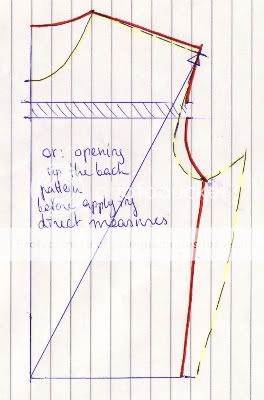 or: opening
up the back
pattern
before applying
direct measures